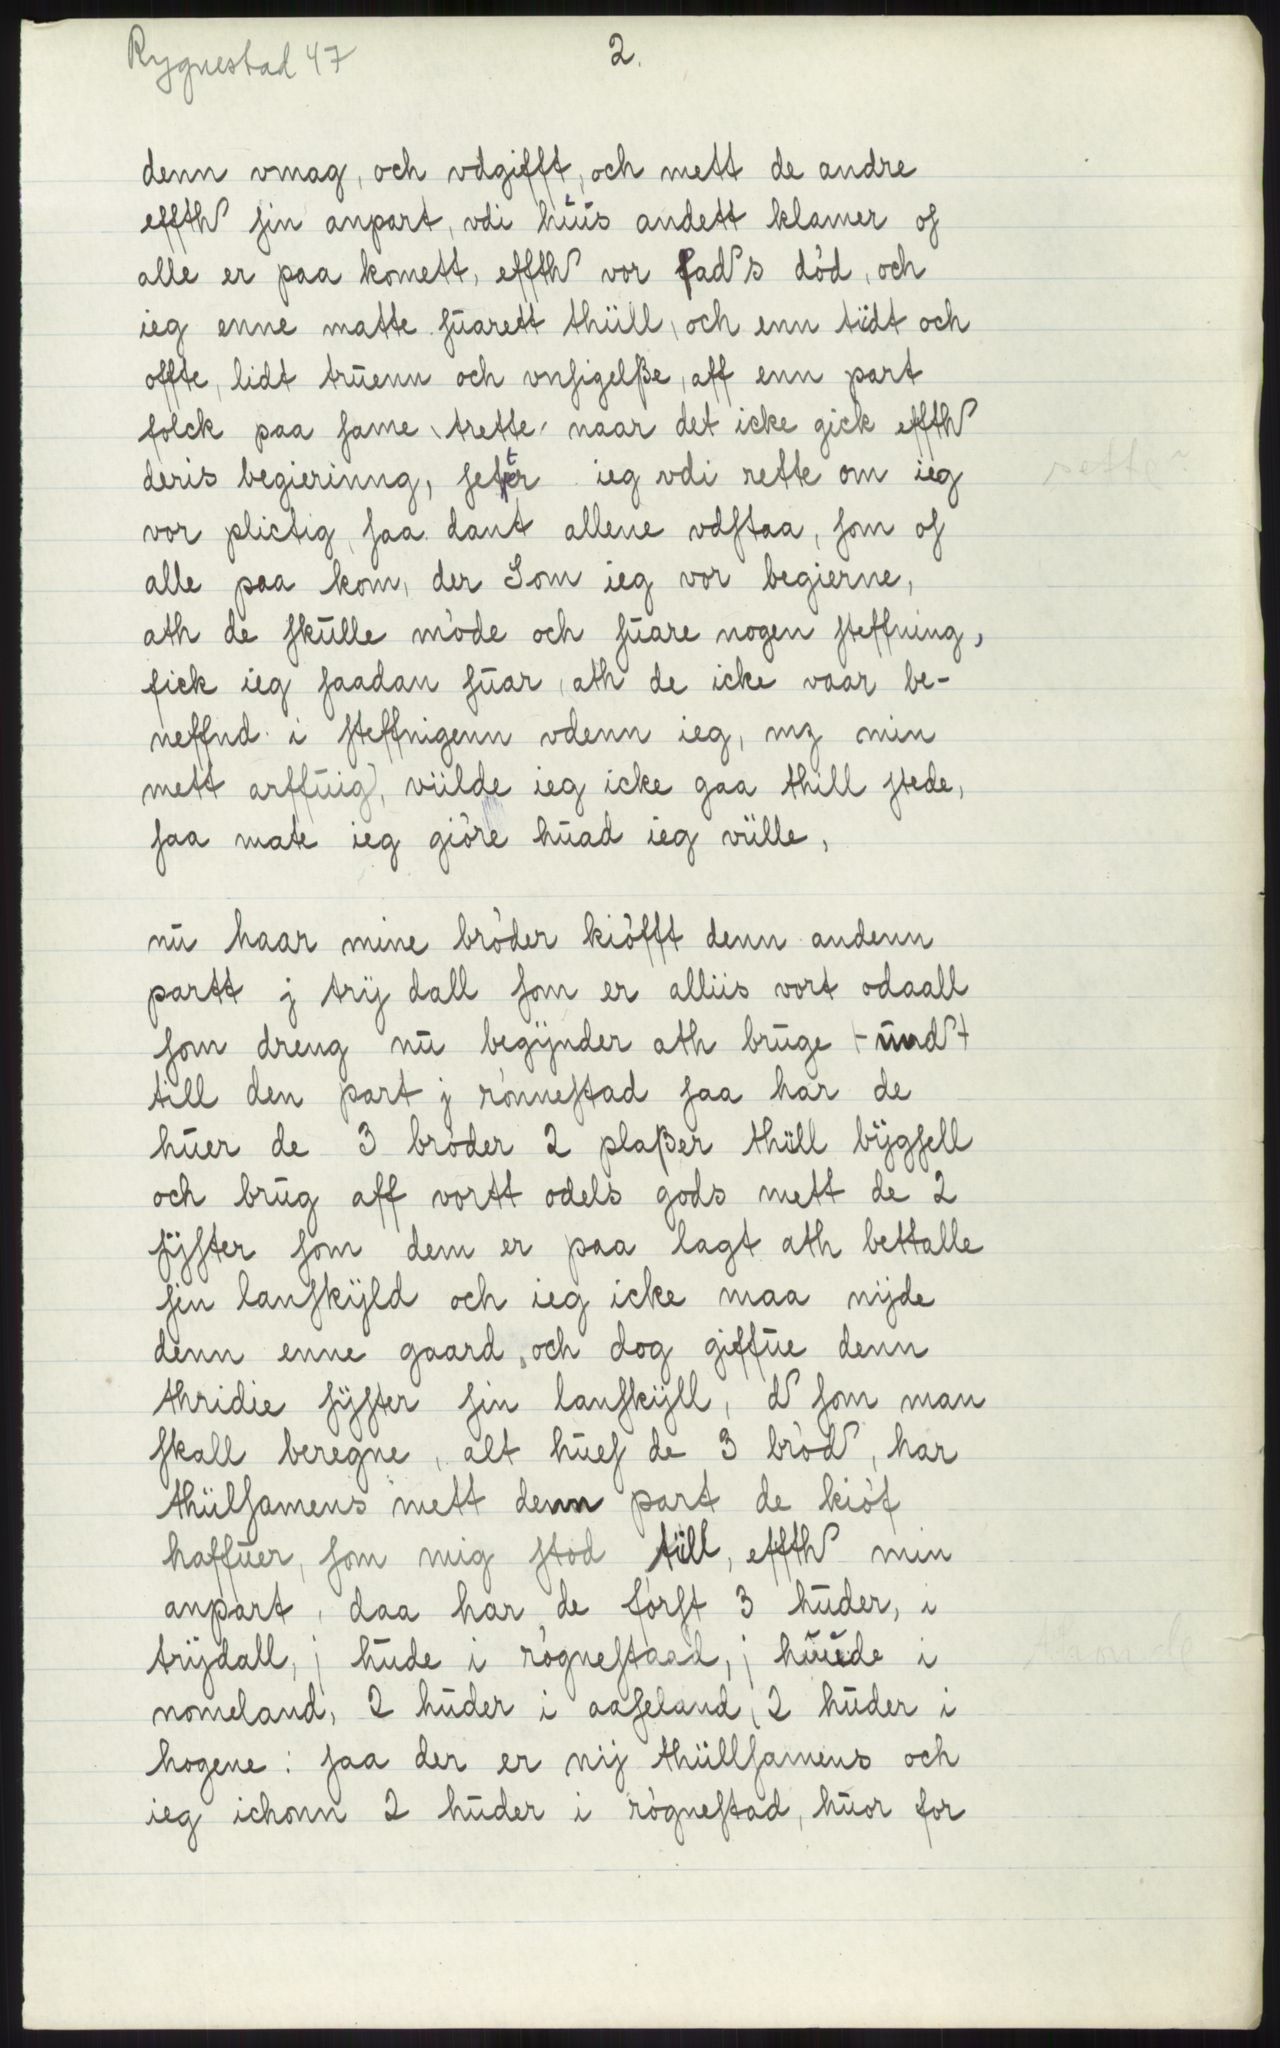 Rygnestad 47
2.
denn vmag, och vdgifft, och mett de andre
effth sin anpart, vdi huus andett klamer os
alle er paa komett, effth vor fads död, och
ieg enne matte suarett thüll, och enn tidt och
offte, lidt truenn och vnsigelße, aff enn part
folck paa same, trette, naar det icke gick effth
deris begierinng, setter ieg vdi rette om ieg
sette?
vor plictig, saa dant allene vdstaa, som os
alle paa kom, der Som ieg vor begierne,
ath de skulle möde och suare nogen steffning,
fick ieg saadan suar, ath de icke vaar be-
neffnd i steffnigenn vdenn ieg, mz min
mett arffuig, viilde ieg icke gaa thill stede,
saa mate ieg giöre huad ieg vülle,
nu haar mine bröder kiöfft denn andenn
partt j trij dall som er alliis vort odaall
som dreng nu begÿnder ath bruge + und +
till den part j rönnestad saa har de
huer de 3 bröder 2 plaßer thüll bÿgsell
och brug aff vortt odels gods mett de 2
sÿster som dem er paa lagt ath bettalle
sin lanskÿld och ieg icke maa nijde
denn enne gaard, och dog giffue denn
thridie sÿster sin lanskÿll, d som man
skall beregne, alt hues de 3 bröd, har
thülsamens mett denn part de kiöf
haffuer, som mig stod till, effth min
anpart, daa har de först 3 huder, i
trijdall, j hude i rögnestaad, j huude i
nomeland, 2 huder i aaseland, 2 huder i
hogene: saa der er nij thüllsamens och
ieg ichonn 2 huder i rögnestad, huor for